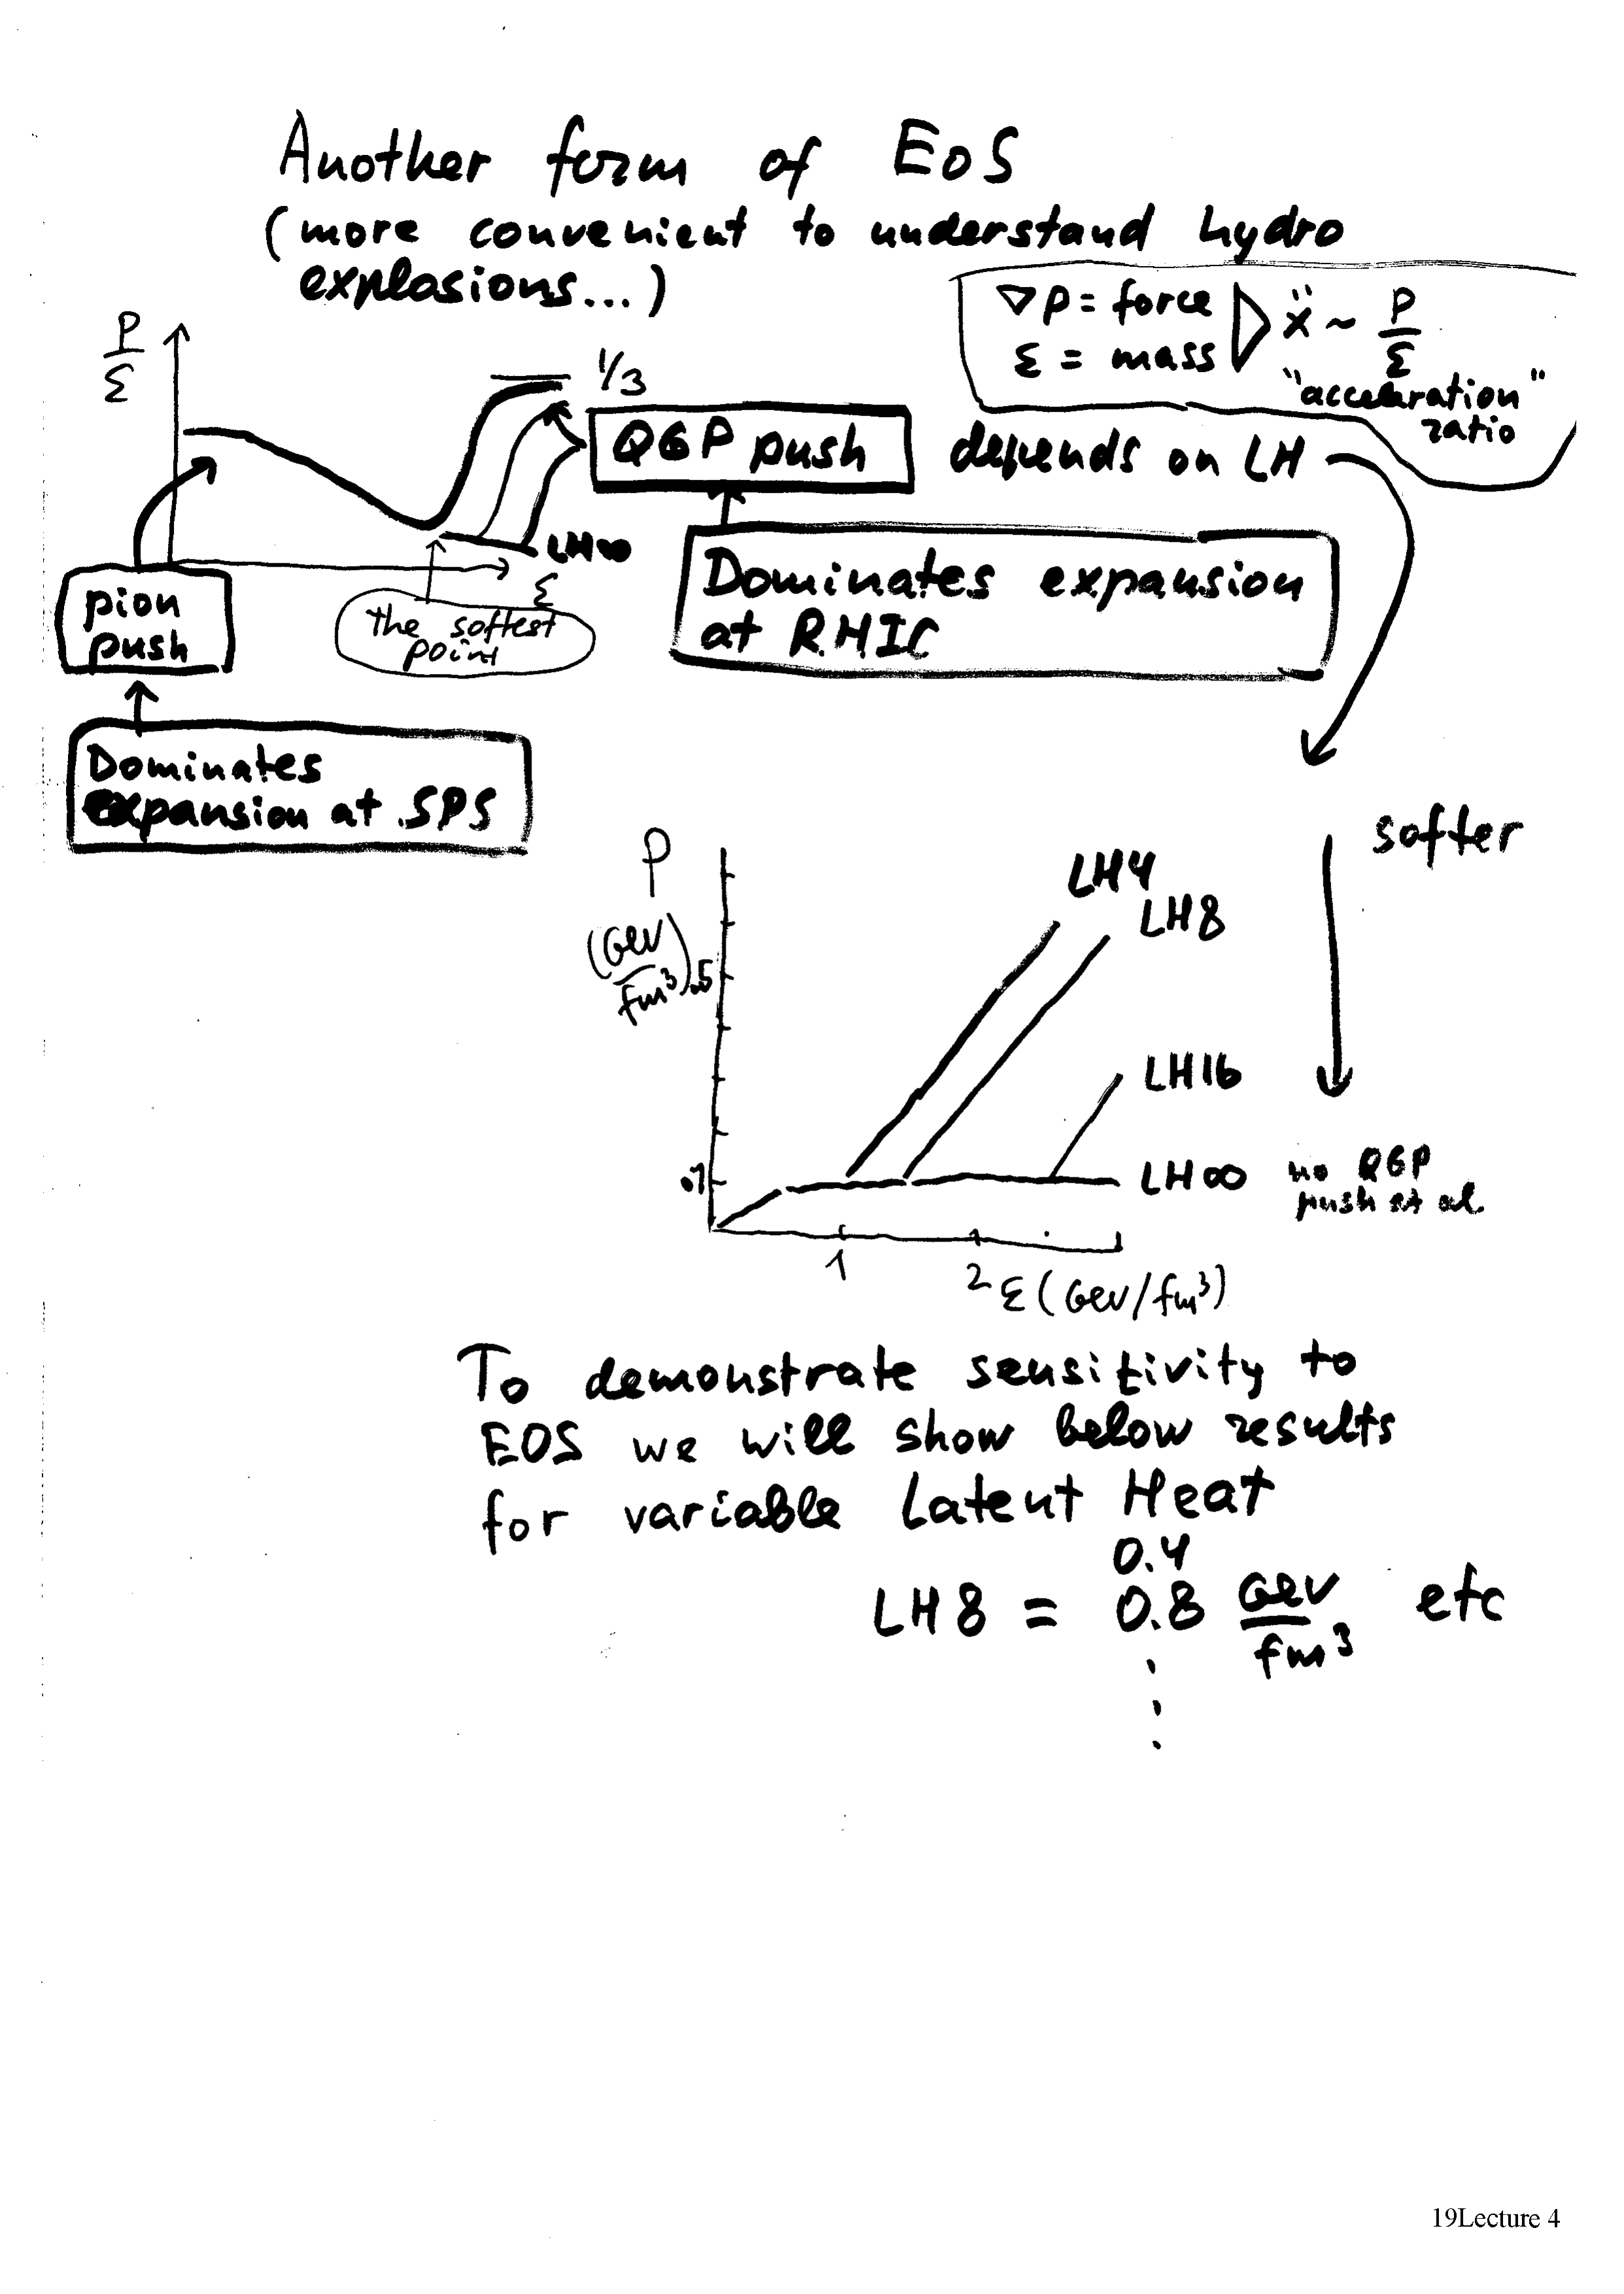 Another form of EoS
(more convenient to understand hydro
explosions...)
∇p = force
ε = mass
ẍ ~ p/ε
"acceleration"
ratio
P/ε
1/3
QGP push
depends on LH
LH∞
ε
the softest
point
pion
push
Dominates expansion
at RHIC
Dominates
expansion at SPS
softer
P
(GeV/fm³)
.5
.1
LH4
LH8
LH16
LH∞
no QGP
push at al.
1
2
ε (GeV/fm³)
To demonstrate sensitivity to
EOS we will show below results
for variable Latent Heat
0.4
LH8 = 0.8 GeV/fm³ etc
⋮
19Lecture 4